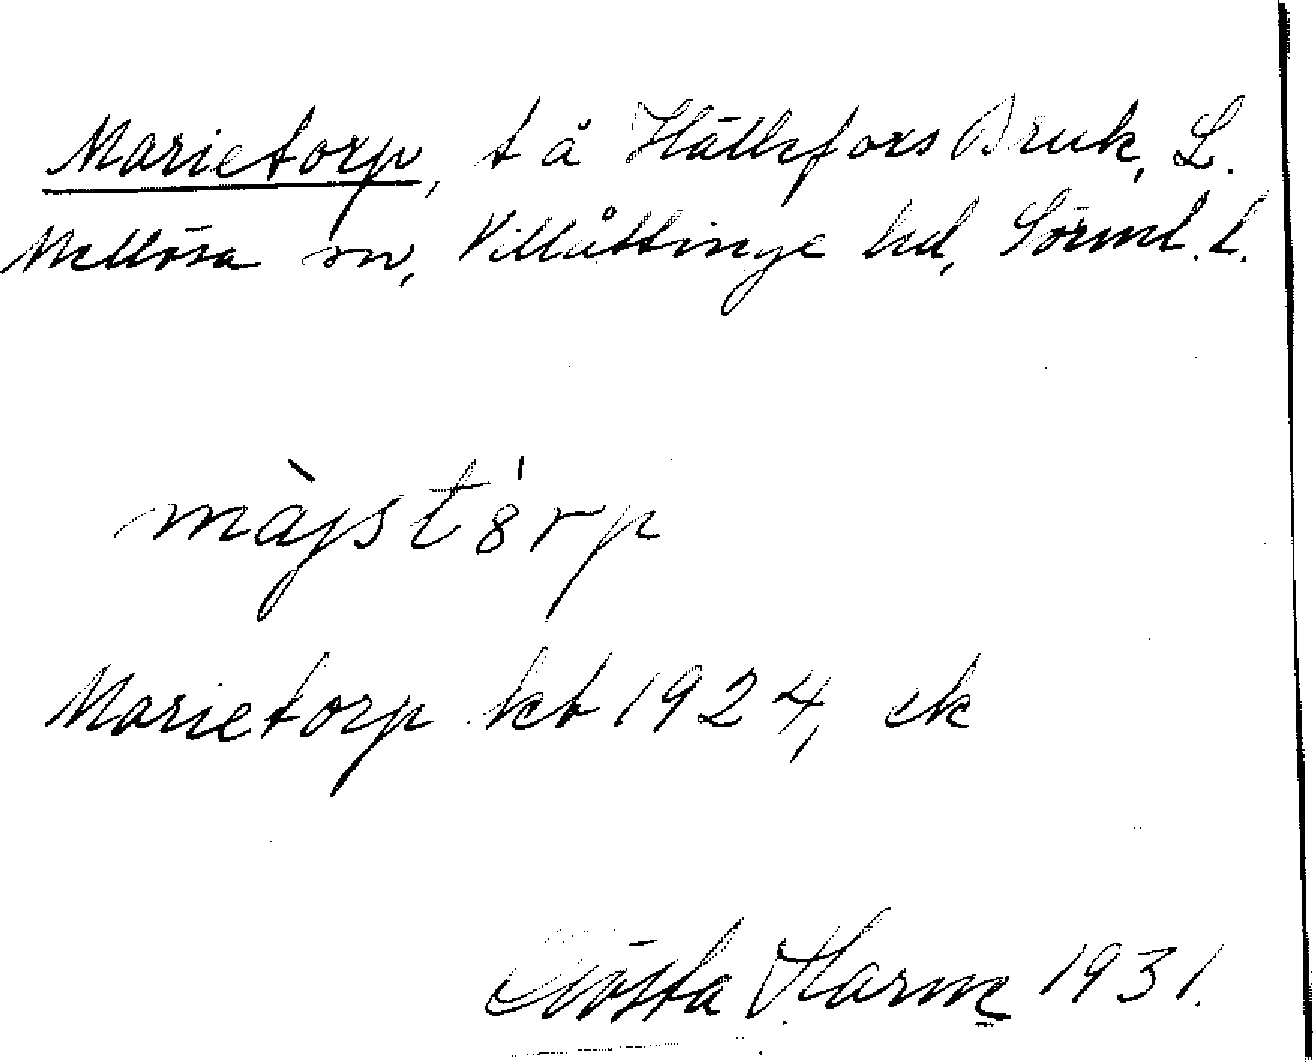 Marietorp, t å Hällefors Bruk, L.
Mellösa sn, Villåttinge hd, Sörml. l.
màjstèrp
Marietorp kb 1924, ek
Gösta Harm 1931.